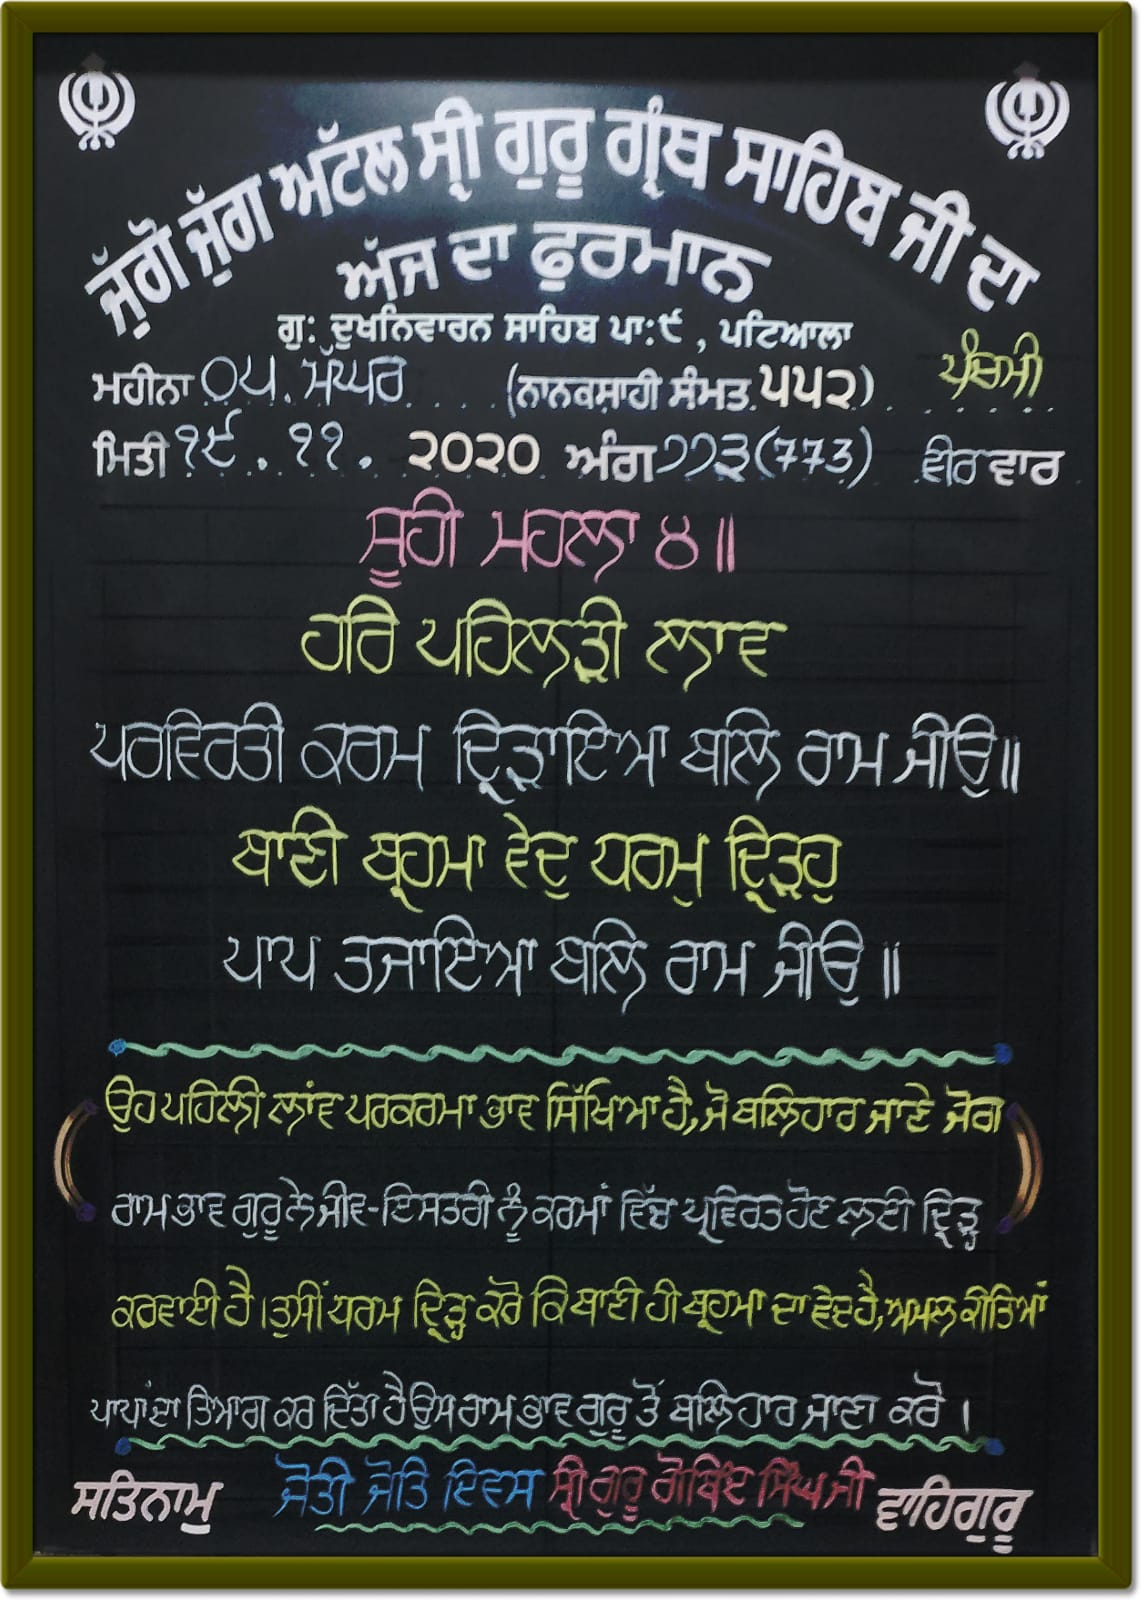 ਜੁੱਗੋ ਜੁੱਗ ਅਟੱਲ ਸ੍ਰੀ ਗੁਰੂ ਗ੍ਰੰਥ ਸਾਹਿਬ ਜੀ ਦਾ
ਅੱਜ ਦਾ ਫੁਰਮਾਨ
ਗੁ: ਦੂਖਨਿਵਾਰਨ ਸਾਹਿਬ ਪਾ:੯ , ਪਟਿਆਲਾ
ਮਹੀਨਾ ੦੫. ਮੱਘਰ (ਨਾਨਕਸ਼ਾਹੀ ਸੰਮਤ ੫੫੨) ਪੰਚਮੀ
ਮਿਤੀ ੧੯. ੧੧. ੨੦੨੦ ਅੰਗ ੭੭੩(773) ਵੀਰਵਾਰ
ਸੂਹੀ ਮਹਲਾ ੪॥
ਹਰਿ ਪਹਿਲੜੀ ਲਾਵ
ਪਰਵਿਰਤੀ ਕਰਮ ਦ੍ਰਿੜਾਇਆ ਬਲਿ ਰਾਮ ਜੀਉ॥
ਬਾਣੀ ਬ੍ਰਹਮਾ ਵੇਦੁ ਧਰਮੁ ਦ੍ਰਿੜਹੁ
ਪਾਪ ਤਜਾਇਆ ਬਲਿ ਰਾਮ ਜੀਉ॥
ਉਹ ਪਹਿਲੀ ਲਾਂਵ ਪਰਕਰਮਾ ਭਾਵ ਸਿੱਖਿਆ ਹੈ, ਜੋ ਬਲਿਹਾਰ ਜਾਣੇ ਜੋਗ
ਰਾਮ ਭਾਵ ਗੁਰੂ ਨੇ ਜੀਵ-ਇਸਤਰੀ ਨੂੰ ਕਰਮਾਂ ਵਿੱਚ ਪ੍ਰਵਿਰਤ ਹੋਣ ਲਈ ਦ੍ਰਿੜ੍ਹ
ਕਰਵਾਈ ਹੈ। ਤੁਸੀਂ ਧਰਮ ਦ੍ਰਿੜ੍ਹ ਕਰੋ ਕਿ ਬਾਣੀ ਹੀ ਬ੍ਰਹਮਾ ਦਾ ਵੇਦ ਹੈ, ਅਮਲ ਕੀਤਿਆਂ
ਪਾਪਾਂ ਦਾ ਤਿਆਗ ਕਰ ਦਿੱਤਾ ਹੈ ਉਸ ਰਾਮ ਭਾਵ ਗੁਰੂ ਤੋਂ ਬਲਿਹਾਰ ਜਾਣਾ ਕਰੋ।
ਸਤਿਨਾਮੁ ਜੋਤੀ ਜੋਤਿ ਦਿਵਸ ਸ੍ਰੀ ਗੁਰੂ ਗੋਬਿੰਦ ਸਿੰਘ ਜੀ ਵਾਹਿਗੁਰੂ